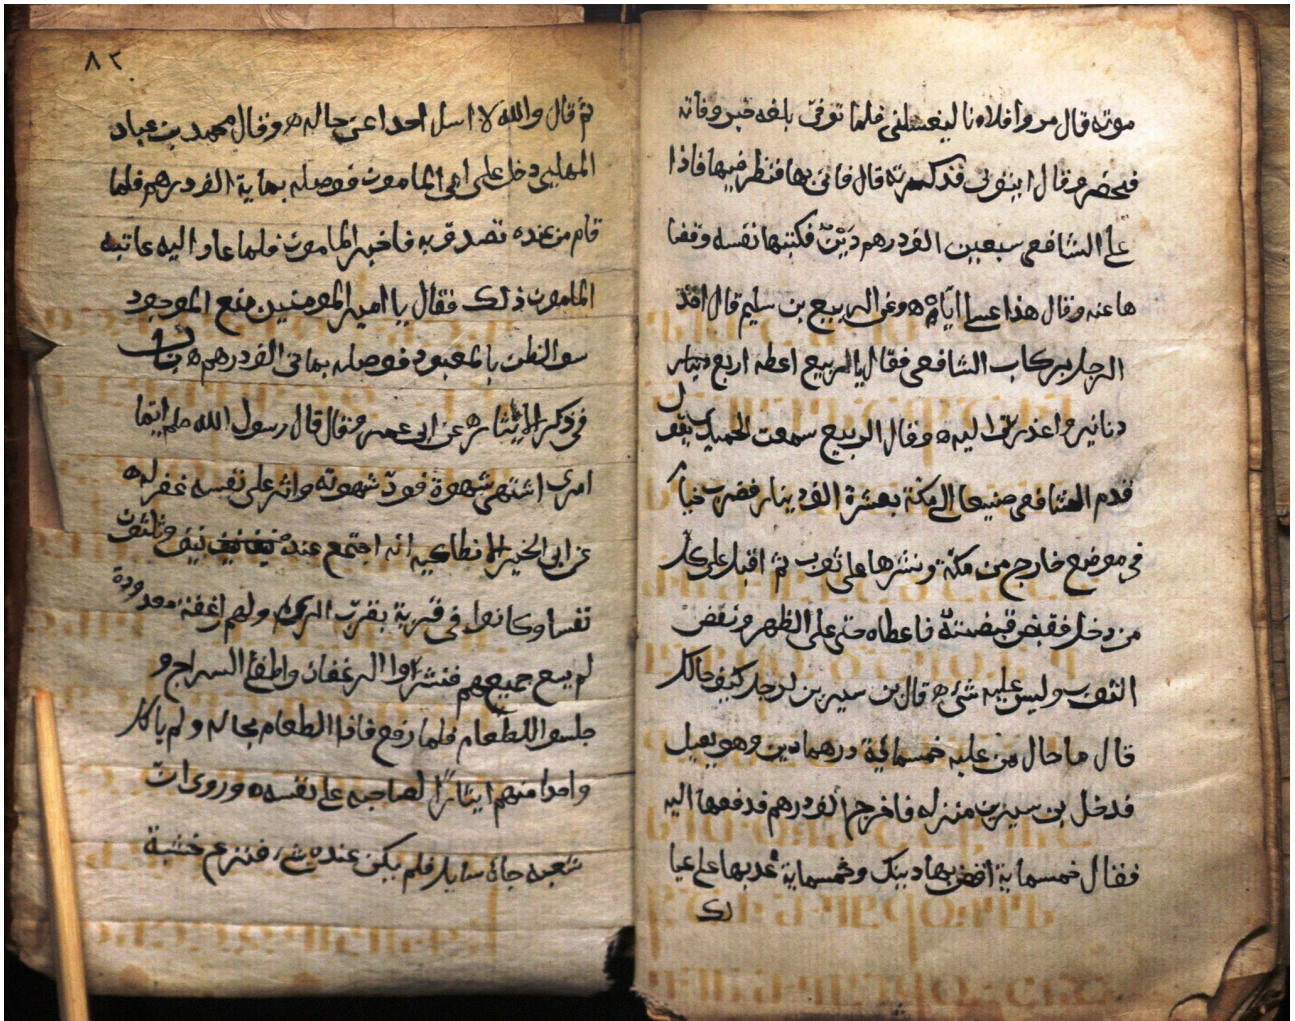 موته قال مروا فلانا ليغسلني فلما توفي بلغه خبر وفاته
فحضر وقال ايتوني قال فاتي بها فنظر فيها فاذا
على الشافعي سبعين الف درهم دين فكتبها نفسه وقضا
ها عنه وقال هذا غسلي اياه وعن الربيع بن سليم قال اخذ
الرجل بركاب الشافعي فقال يا الربيع اعطه اربع
دنانير واعذرني اليه وقال الربيع سمعت الحميدي يقول
قدم الشافعي من صنعا الى مكة بعشرة الف دينار فضرب خباء
في موضع خارج من مكة ونثرها على ثوب ثم اقبل على كل
من دخل فقبض قبضة فاعطاه حتى صلى الظهر ونفض
الثوب وليس عليه شي قال بن سيرين لرجل كيف حالك
قال ما حال من عليه خمسمائة درهما دين وهو يعيل
فدخل بن سيرين منزله فاخرج الف درهم فدفعها اليه
فقال خمسماية اقض بها دينك وخمسماية عد بها على عيا
لك
٨٢
ثم قال والله لا اسل احدا عن حاله وقال محمد بن عباد
المهلبي دخل على ابي المامون فوصله بماية الف درهم فلما
قام من عنده تصدق به فاخبر المامون فلما عاد اليه عاتبه
المامون ذلك فقال يا امير المومنين منع الموجود
سو الظن بالمعبود فوصله بماتي الف درهم باب
في ذكر الايثار عن ابي عمر قال قال رسول الله صلم ايما
امرى اشتهى شهوة فرد شهوته واثر على نفسه غفر له
عن ابي الخير الانطاكيه انه اجتمع عنده نيف وثلثون
نفسا وكانوا في قرية بقرب الري ولهم ارغفة معدودة
لم يسع جميعهم فنشروا الرغفان واطفئ السراج و
جلسوا للطعام فلما رفع فاذا الطعام بحاله ولم ياكل
واحدا منهم ايثارا لصاحبه على نفسه وروى ان
شعبه جاه سايل فلم يكن عنده شي فنزع خشبة